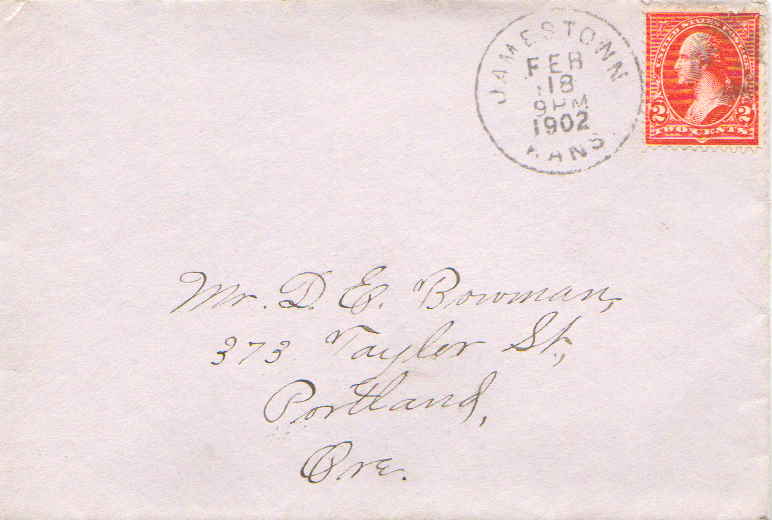 JAMESTOWN
FEB
18
9PM
1902
KANS.
UNITED STATES POSTAGE
2 2
TWO CENTS
Mr. D. E. Bowman,
373 Taylor St.,
Portland,
Ore.